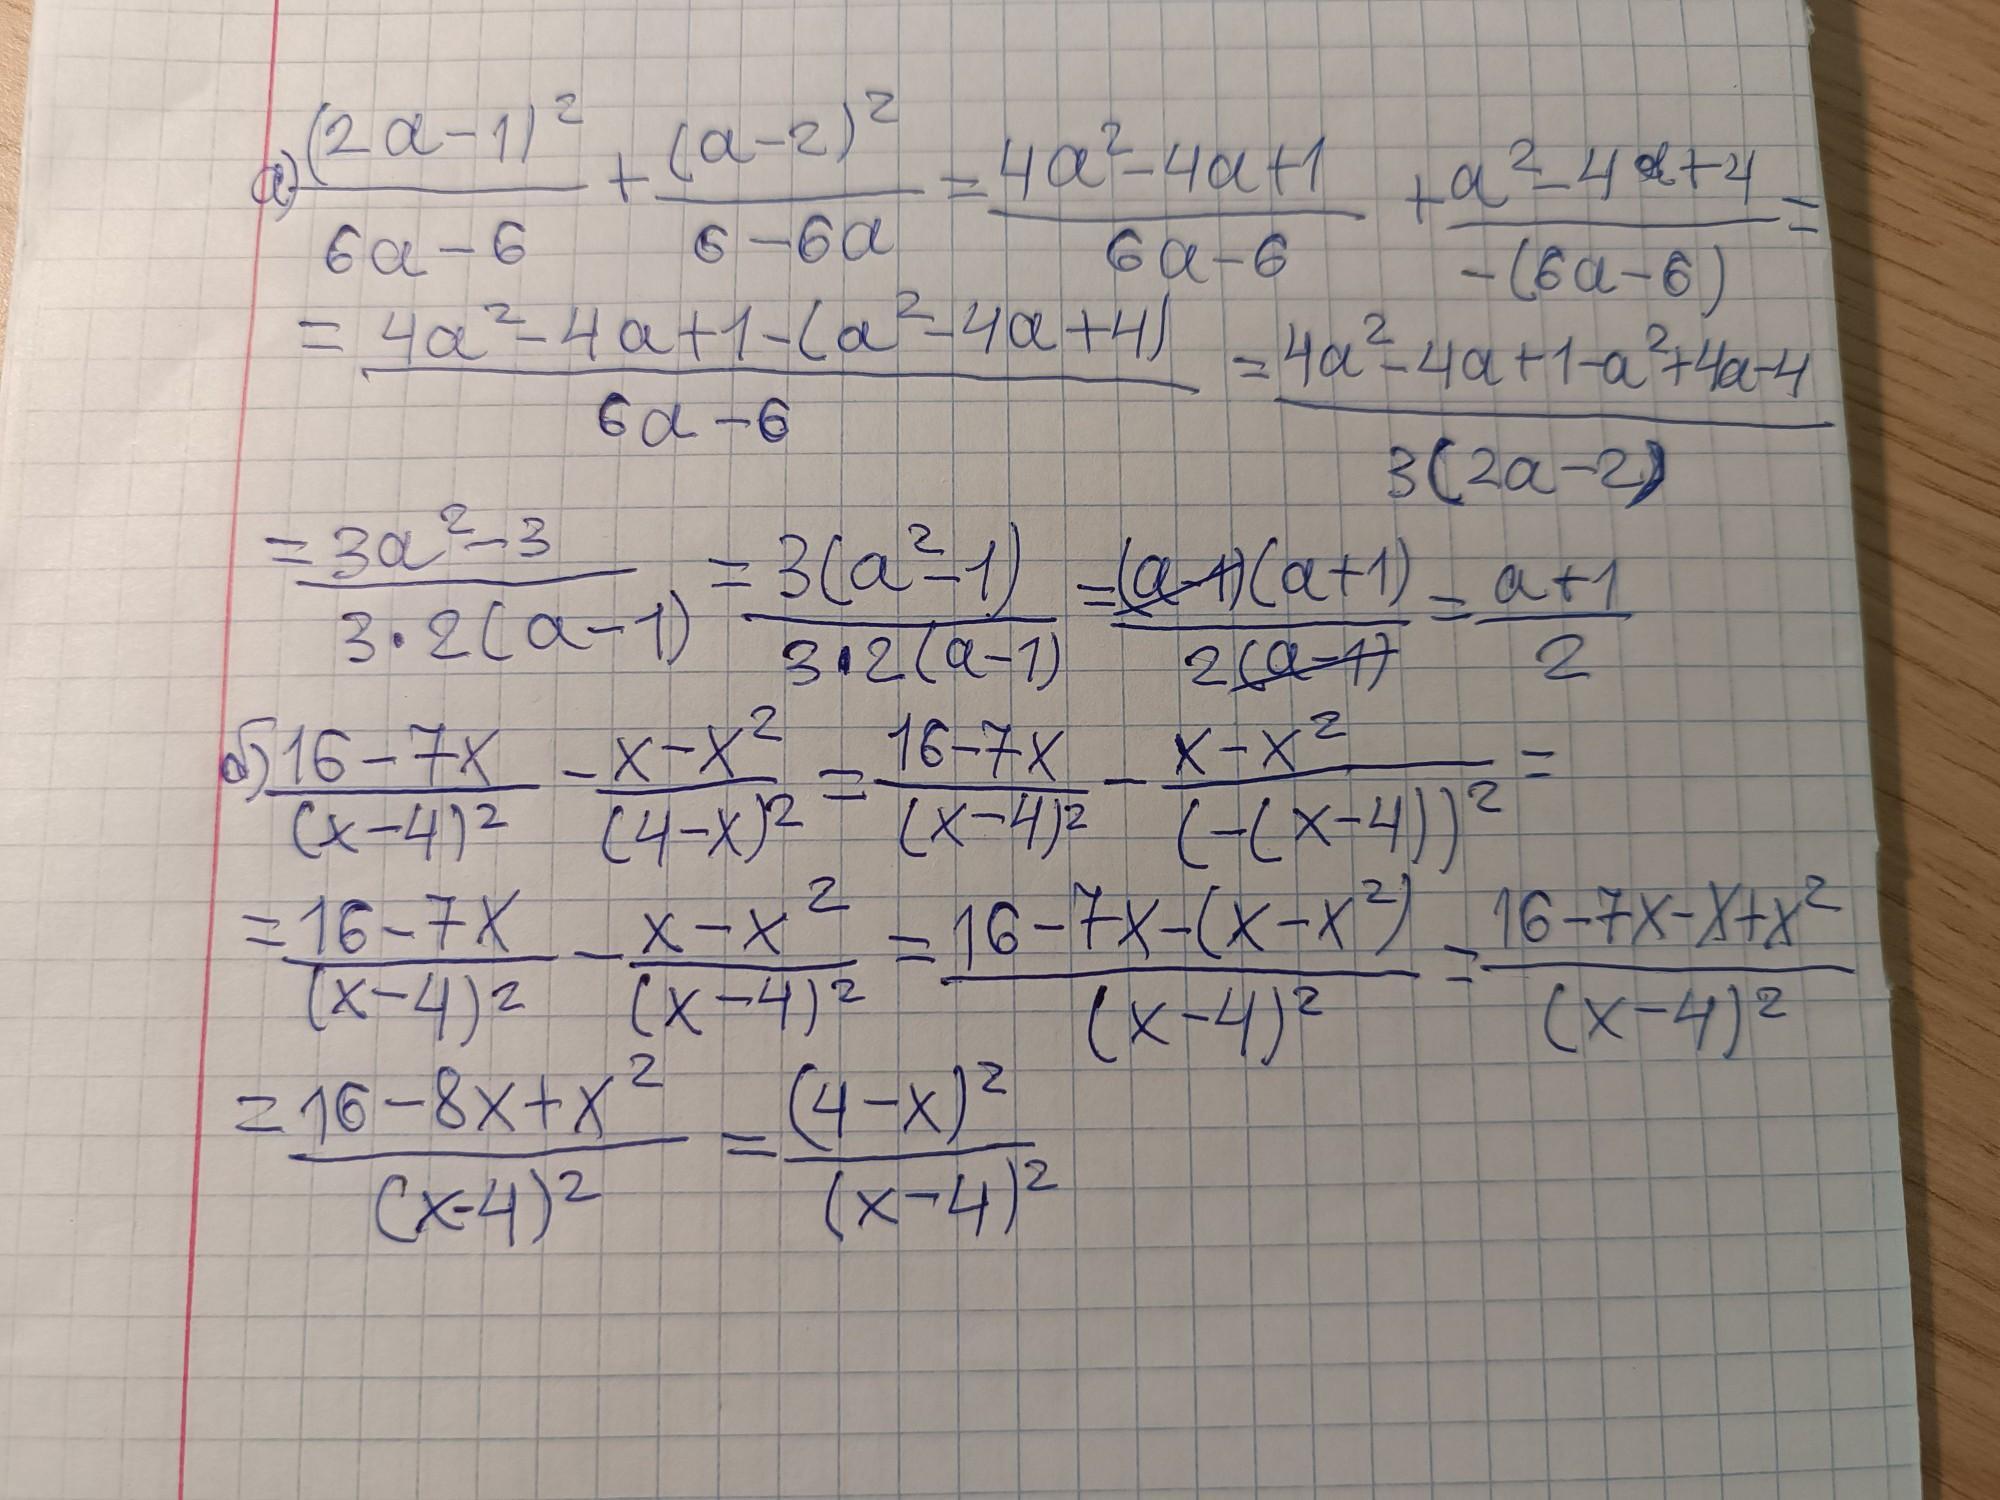 а) (2a-1)²/(6a-6) + (a-2)²/(6-6a) = (4a²-4a+1)/(6a-6) + (a²-4a+4)/(-(6a-6)) =
= (4a²-4a+1-(a²-4a+4))/(6a-6) = (4a²-4a+1-a²+4a-4)/(3(2a-2))
= (3a²-3)/(3·2(a-1)) = 3(a²-1)/(3·2(a-1)) = (a-1)(a+1)/(2(a-1)) = (a+1)/2
б) (16-7x)/(x-4)² - (x-x²)/(4-x)² = (16-7x)/(x-4)² - (x-x²)/(-(x-4))² =
= (16-7x)/(x-4)² - (x-x²)/(x-4)² = (16-7x-(x-x²))/(x-4)² = (16-7x-x+x²)/(x-4)²
= (16-8x+x²)/(x-4)² = (4-x)²/(x-4)²